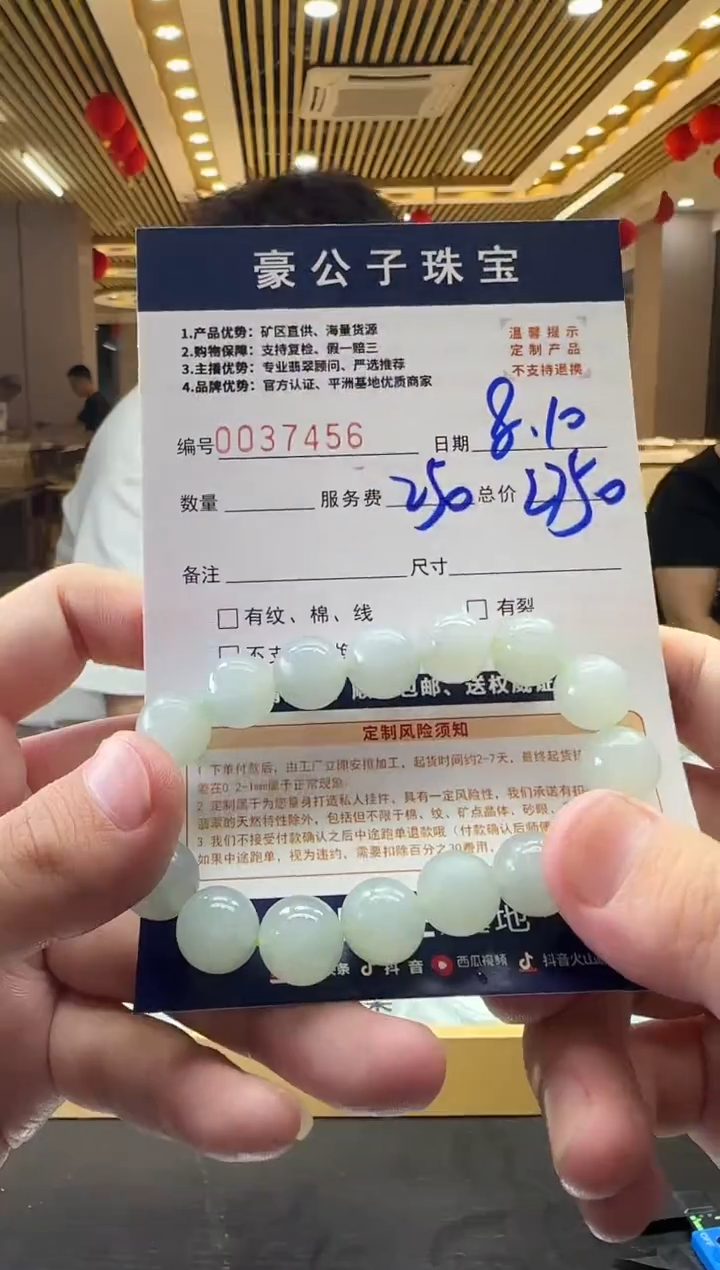 豪公子珠宝
1.产品优势：矿区直供、海量货源
2.购物保障：支持复检、假一赔三
3.主播优势：专业翡翠顾问、严选推荐
4.品牌优势：官方认证、平洲基地优质商家
温馨提示
定制产品
不支持退换
编号0037456 日期8.10
数量 服务费250 总价
备注 尺寸
有纹、棉、线 有裂
包邮、送权威证
定制风险须知
1 下单付款后，由工厂立即安排加工，起货时间约2-7天，最终起货
差在0.2-1mm属于正常现象
2 定制属于为您量身打造私人挂件，具有一定风险性，我们承诺有
翡翠的天然特性除外，包括但不限于棉、纹、矿点晶体、砂眼
3 我们不接受付款确认之中途跑单退款哦（付款确认后
如果中途跑单，视为违约，需要扣除百分之 费用，
地
条 抖音 西瓜视频 抖音火山